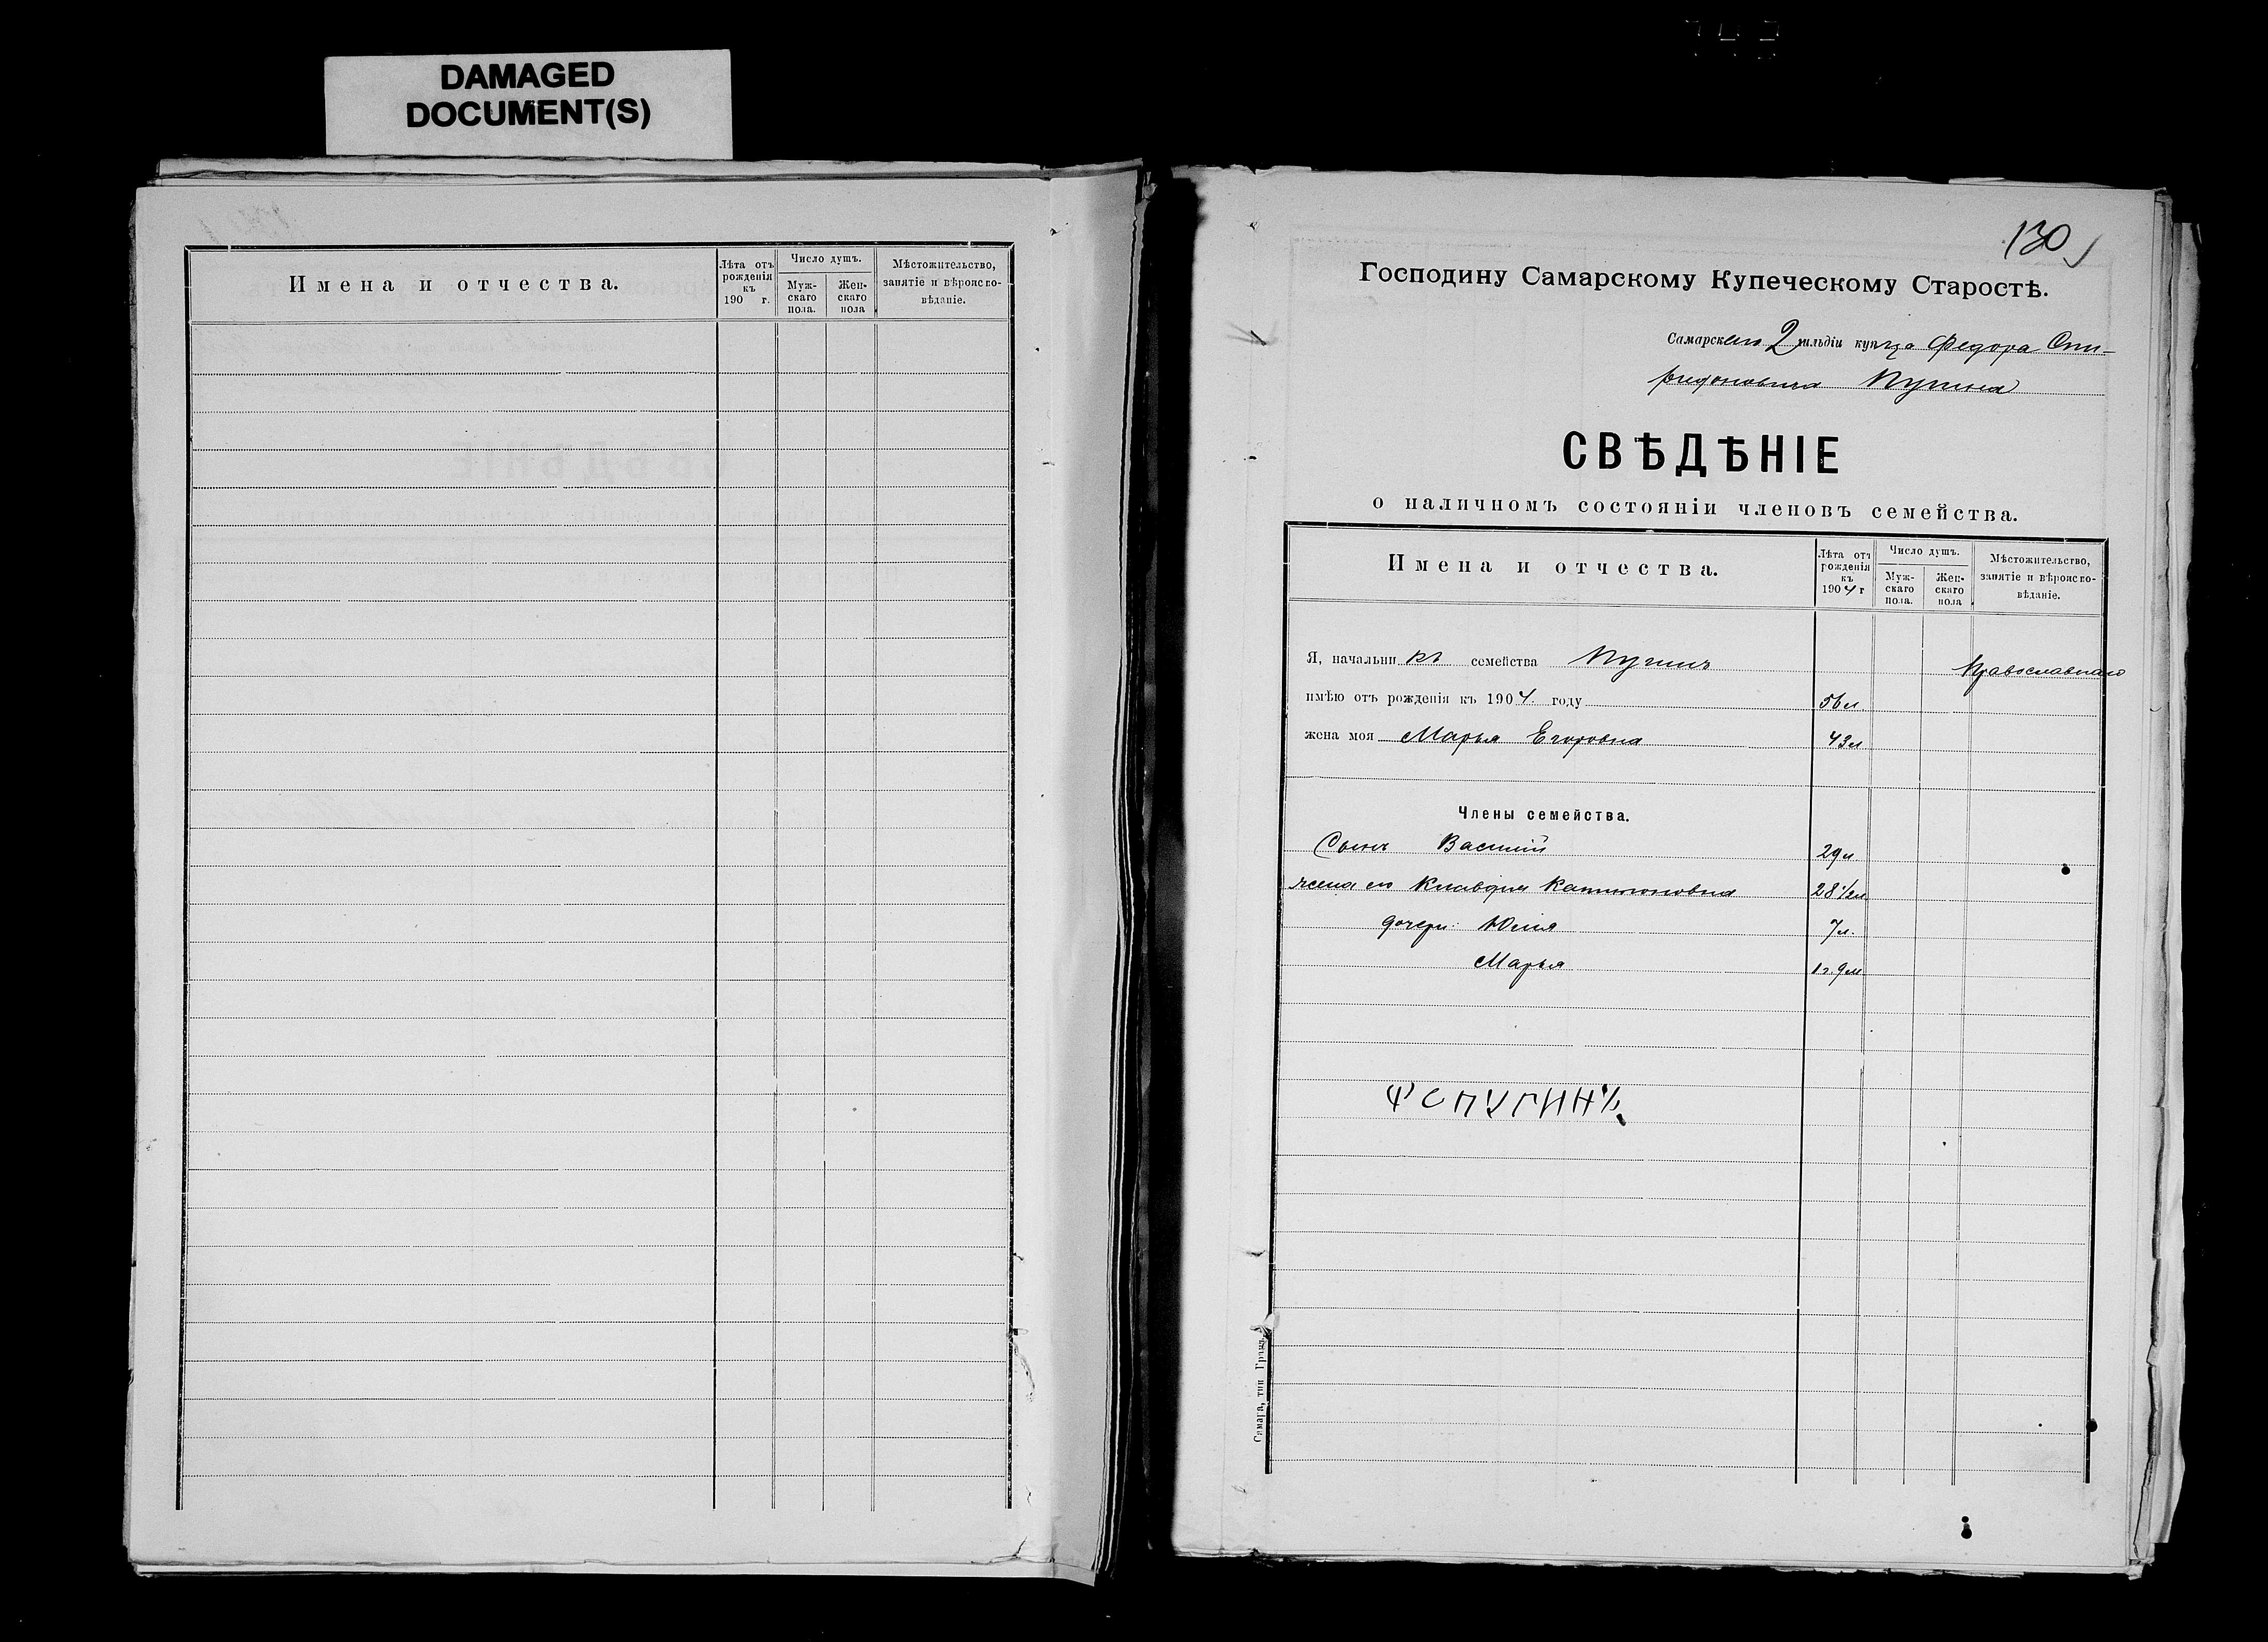 DAMAGED
DOCUMENT(S)
Имена и отчества.
Лѣта отъ рожденія къ 190 г.
Число душъ.
Мужскаго пола.
Женскаго пола
Мѣстожительство, занятіе и вѣроисповѣданіе.
130
Господину Самарскому Купеческому Старостѣ.
Самарскаго 2 гильдіи купца Федора Спи-
ридоновича Пугина
СВѢДѢНІЕ
о наличномъ состояніи членовъ семейства.
Имена и отчества.
Лѣта отъ рожденія къ 1904 г
Число душъ.
Мужскаго пола.
Женскаго пола
Мѣстожительство, занятіе и вѣроисповѣданіе.
Я, начальникъ семейства Пугинъ Православнаго
имѣю отъ рожденія къ 1904. году 56 л.
жена моя Марья Егоровна 43 л
Члены семейства.
Сынъ Василій 29 л.
жена его Клавдия 28 1/2 л.
дочери: Юлія 7 л.
Марья 1 г. 9 м
Ф С ПУГИНЪ
Самара, тип